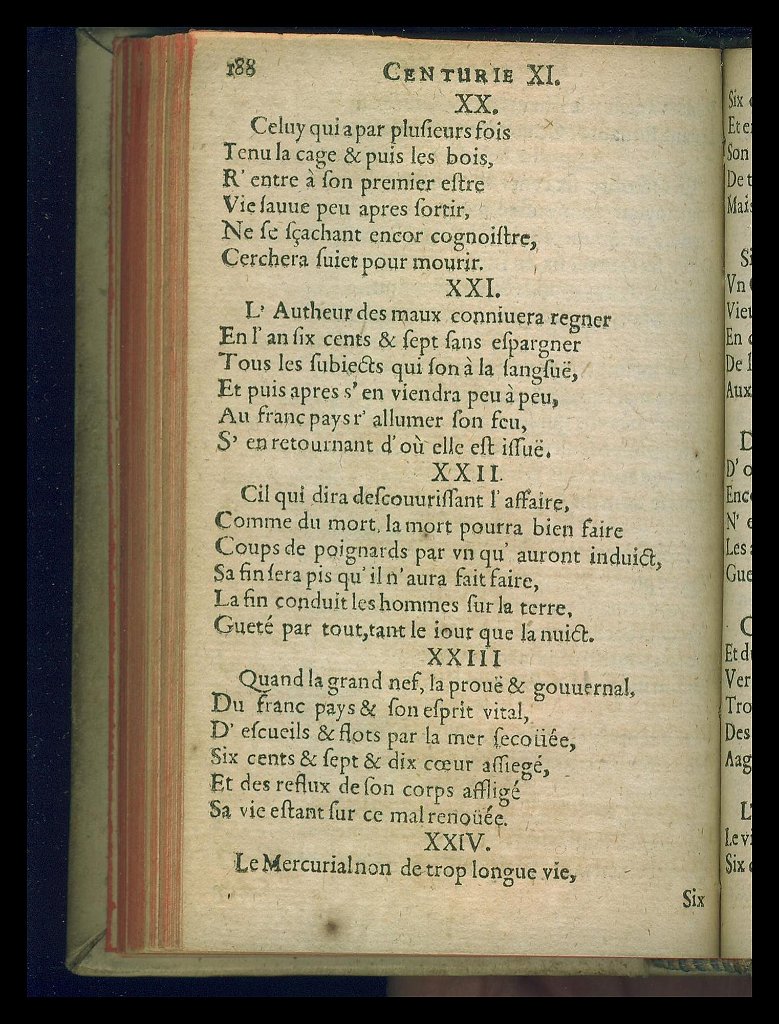 188 CENTURIE XI.
XX.
Celuy qui a par pluſieurs fois
Tenu la cage & puis les bois,
R' entre à ſon premier eſtre
Vie ſauue peu apres ſortir,
Ne ſe ſçachant encor cognoiſtre,
Cerchera ſuiet pour mourir.
XXI.
L' Autheur des maux conniuera regner
En l' an ſix cents & ſept ſans eſpargner
Tous les ſubiects qui ſon à la ſangſuë,
Et puis apres s' en viendra peu à peu,
Au franc pays r' allumer ſon feu,
S' en retournant d' où elle eſt iſſuë.
XXII.
Cil qui dira deſcouuriſſant l' affaire,
Comme du mort, la mort pourra bien faire
Coups de poignards par vn qu' auront induict,
Sa fin ſera pis qu' il n' aura fait faire,
La fin conduit les hommes ſur la terre,
Gueté par tout, tant le iour que la nuict.
XXIII
Quand la grand nef, la prouë & gouuernal,
Du franc pays & ſon eſprit vital,
D' eſcueils & flots par la mer ſecoüée,
Six cents & ſept & dix cœur aſſiegé,
Et des reflux de ſon corps affligé
Sa vie eſtant ſur ce mal renoüée.
XXIV.
Le Mercurial non de trop longue vie,
Six
Six
Et
Son
De
Mais
Vn
En
De
Aux
D'
N'
Les
Gue
Et
Ver
Des
L'
Six